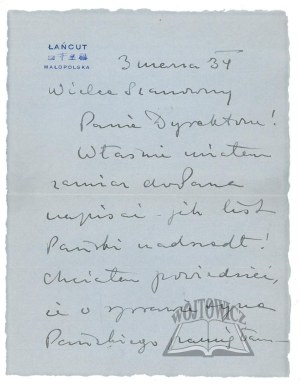 ŁAŃCUT
MAŁOPOLSKA
3 marca 34
Wielce Szanowny
Panie Dyrektorze!
Właśnie miałem
zamiar do Pana
napisać - jak list
Pański nadszedł!
Chciałem powiedzieć,
że o sprawie
Pańskiego pamiętam
WÓJTOWICZ